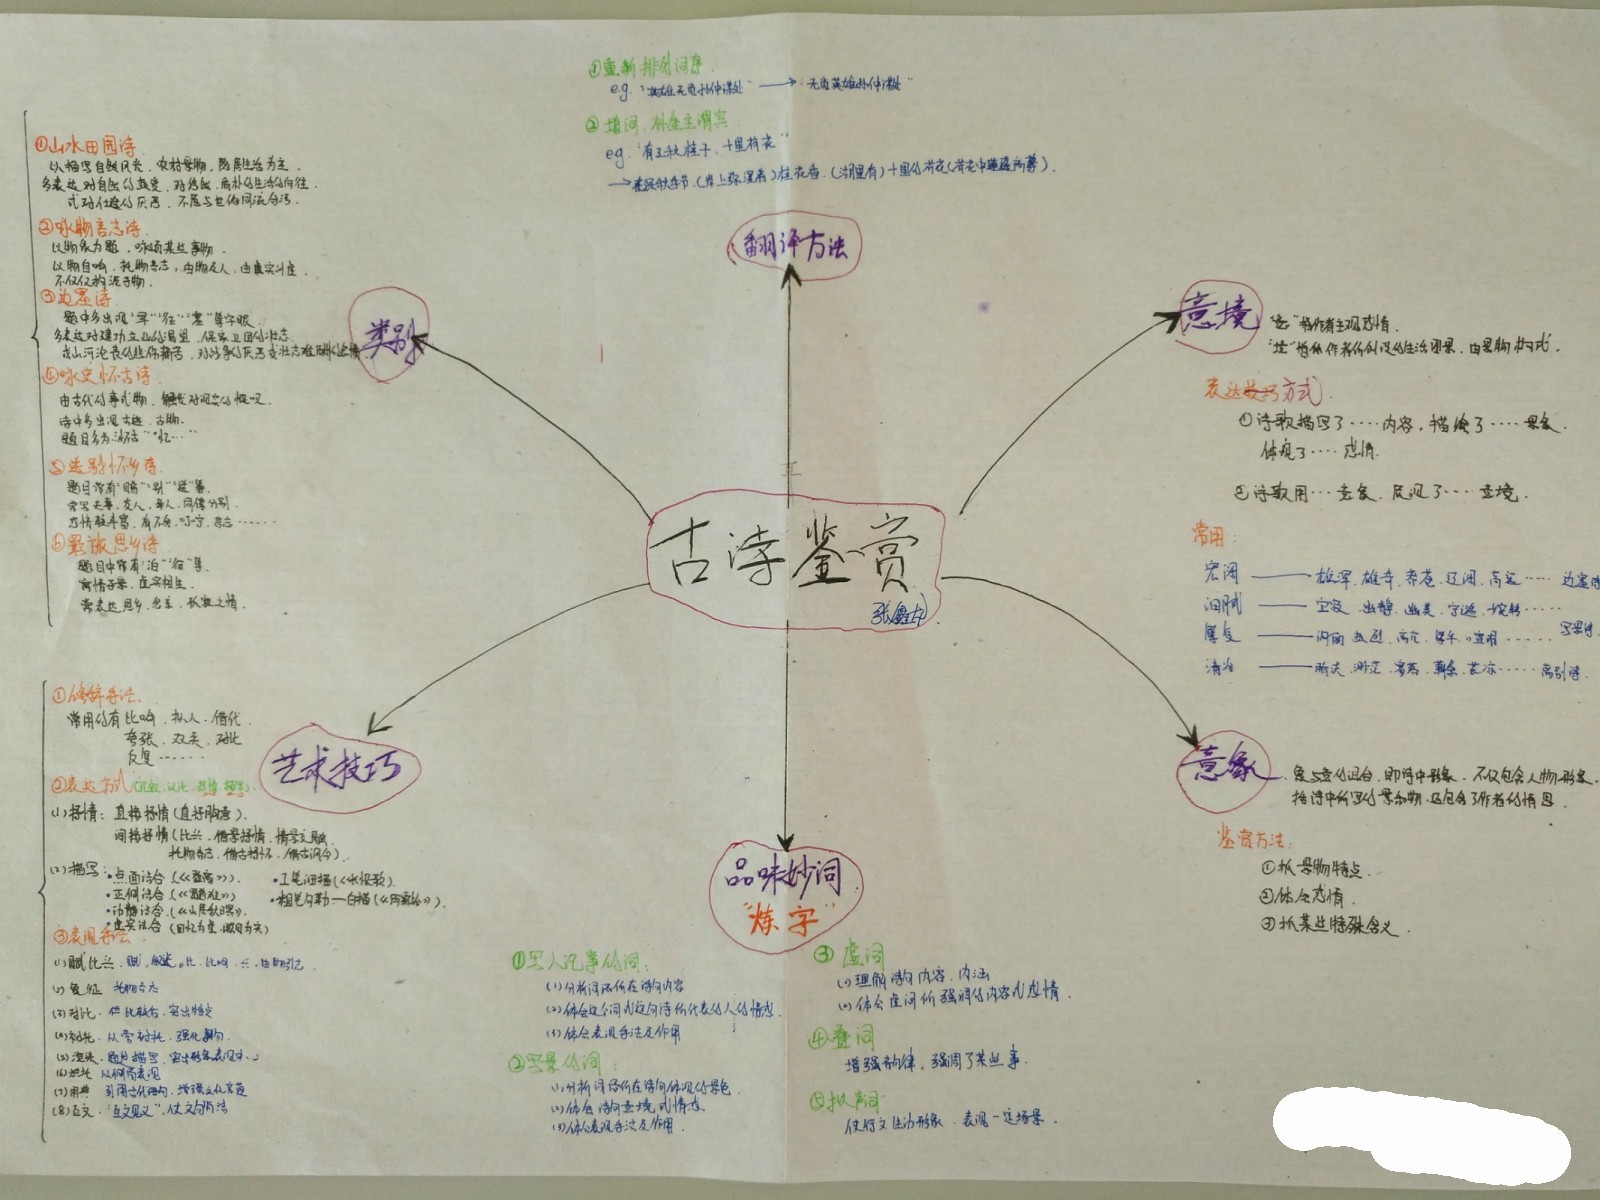 ①重新排列词序
e.g. "英雄无觅孙仲谋处" → "无觅英雄孙仲谋处"
②填词、补全主谓宾
e.g. "有三秋桂子,十里荷花"
→在深秋季节,(岸上弥漫着)桂花香,(湖里有)十里的荷花(荷花中
翻译方法
类别
①山水田园诗
以描写自然风光、农村景物、隐居生活为主。
多表达对自然的热爱,对悠然、质朴的生活的向往,
或对仕途的厌恶,不愿与世俗同流合污。
②咏物言志诗
以物象为题,咏颂某些事物。
以物自喻,托物言志,由物及人,由真实
不仅仅拘泥于物。
③边塞诗
题中多出现"军""征""塞"等字眼。
多表达对建功立业的渴望,保家卫国的壮志
或山河沦丧的悲伤痛苦,对战争的厌恶或壮志难酬的悲愤
④咏史怀古诗
由古代的事或物,触发对现实的慨叹。
诗中多出现古迹、古物。
题目多为"怀古""忆…"
⑤送别怀乡诗
题目常有"赠""别""送"等。
常写夫妻、友人、亲人、同僚分别
感情较丰富,有不舍、叮咛、言志……
⑥羁旅思乡诗
题目中常有"泊""宿"等。
寓情于景,虚实相生。
常表达思乡、念亲、孤寂之情。
意境
"意"指作者主观感情。
"境"指作者所创设的生活图景,由景物构成。
表达技巧方式.
①诗歌描写了……内容,描绘了……景象,
体现了……感情.
②诗歌用…意象,展现了……意境.
常用:
宏阔——雄浑、雄奇、苍茫、辽阔、高远……边塞诗
空寂、幽静、幽美、宁谧……
热烈……写景诗
凄苦、萧条、哀凉……离别诗.
古诗鉴赏
艺术技巧
①修辞手法.
常用的有比喻、拟人、借代
夸张、双关、对比
反复……
②表达方式(记叙、议论、抒情、描写).
(1)抒情:直接抒情(直抒胸臆).
间接抒情(比兴、借景抒情、情景交融
托物言志、借古抒怀、借古讽今).
(2)描写:•点面结合(《登高》).
•正侧结合(《蜀道难》)
•动静结合(《山居秋暝》).
•虚实结合
•工笔细描(《长恨歌》).
•粗笔勾勒—白描
③表现手法
(1)赋比兴
(2)象征 托物言志
(3)对比
(4)衬托
(5)渲染
(6)烘托 从侧面表现
(7)用典
(8)互文 "互文见义"
意象
象与意的组合,即诗中形象,不仅包含人物形象,
指诗中所写的景和物,还包含了作者的情思.
鉴赏方法:
①抓景物特点.
②体会感情.
③抓某些特殊含义.
品味妙词
"炼字"
①写人记事的词:
(1)分析词语所在诗句内容
(2)体会这个词或这句诗所代表的人的情感.
(3)体会表现手法及作用
②写景的词:
(1)分析词语所在诗句体现的景色.
(2)体会诗句意境或情态.
(3)体会表现手法及作用.
③虚词
(1)理解诗句内容、内涵
(2)体会虚词所强调的内容或感情.
④叠词
增强韵律,强调了某些事.
⑤拟声词
使行文生动形象,表现一定场景.